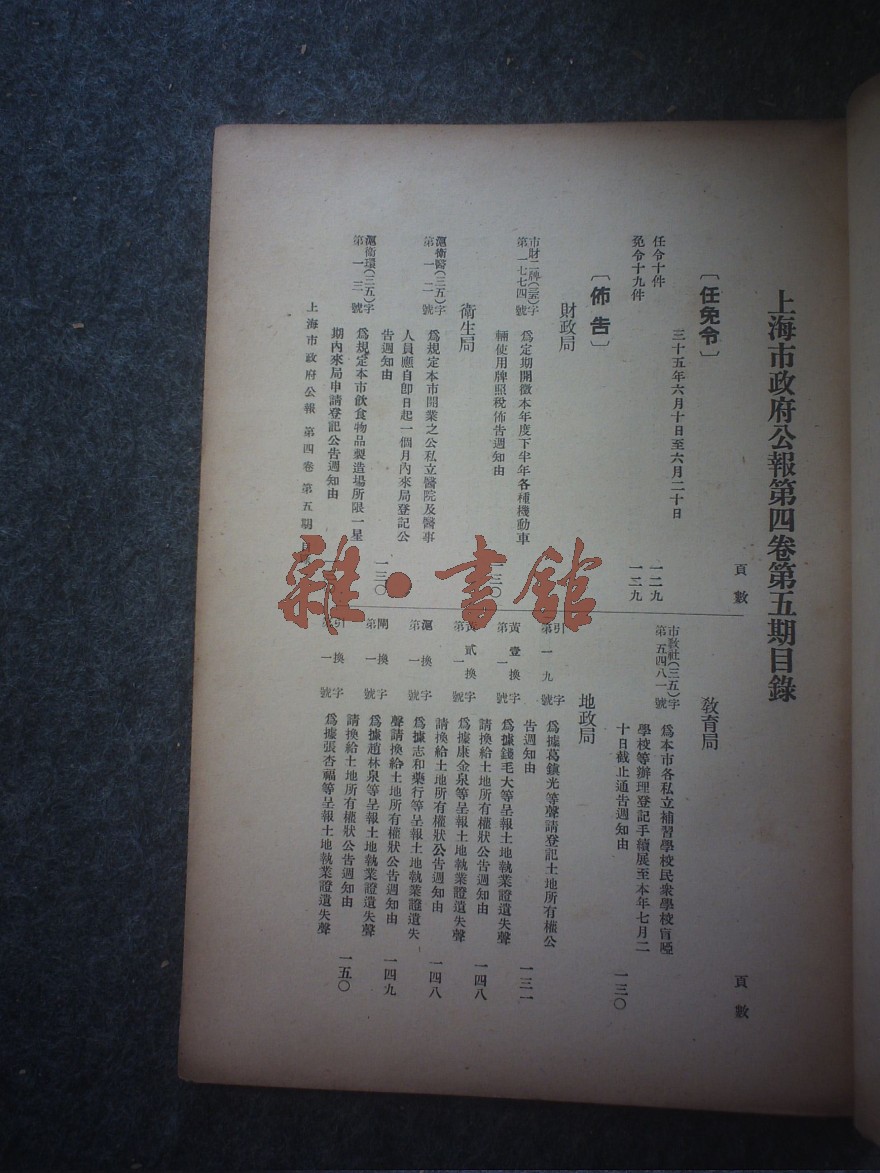 上海市政府公報第四卷第五期目錄
頁數
〔任免令〕
三十五年六月十日至六月二十日
任令十件
一二九
免令十九件
一二九
〔佈告〕
財政局
市財二牌(三五)字
第一七七四號
爲定期開徵本年度下半年各種機動車
輛使用牌照稅佈告週知由
一三〇
衛生局
滬衛醫(三五)字
第一二號
爲規定本市開業之公私立醫院及醫事
人員應自卽日起一個月內來局登記公
告週知由
一三〇
滬衛環(三五)字
第一三號
爲規定本市飲食物品製造場所限一星
期內來局申請登記公告週知由
頁數
教育局
市教社(三五)字
第五四八一號
爲本市各私立補習學校民衆學校盲啞
學校等辦理登記手續展至本年七月二
十日截止通告週知由
一三〇
地政局
引字
第一九號
爲據葛鎮光等聲請登記土地所有權公
告週知由
一三一
黃壹換字
第一號
爲據錢毛大等呈報土地執業證遺失聲
請換給土地所有權狀公告週知由
一四八
黃貳換字
第一號
爲據康金泉等呈報土地執業證遺失聲
請換給土地所有權狀公告週知由
一四八
滬換字
第一號
爲據志和藥行等呈報土地執業證遺失
聲請換給土地所有權狀公告週知由
一四九
閘換字
第一號
爲據趙林泉等呈報土地執業證遺失聲
請換給土地所有權狀公告週知由
一五〇
引換字
第一號
爲據張杏福等呈報土地執業證遺失聲
上海市政府公報 第四卷 第五期目
雜·書館